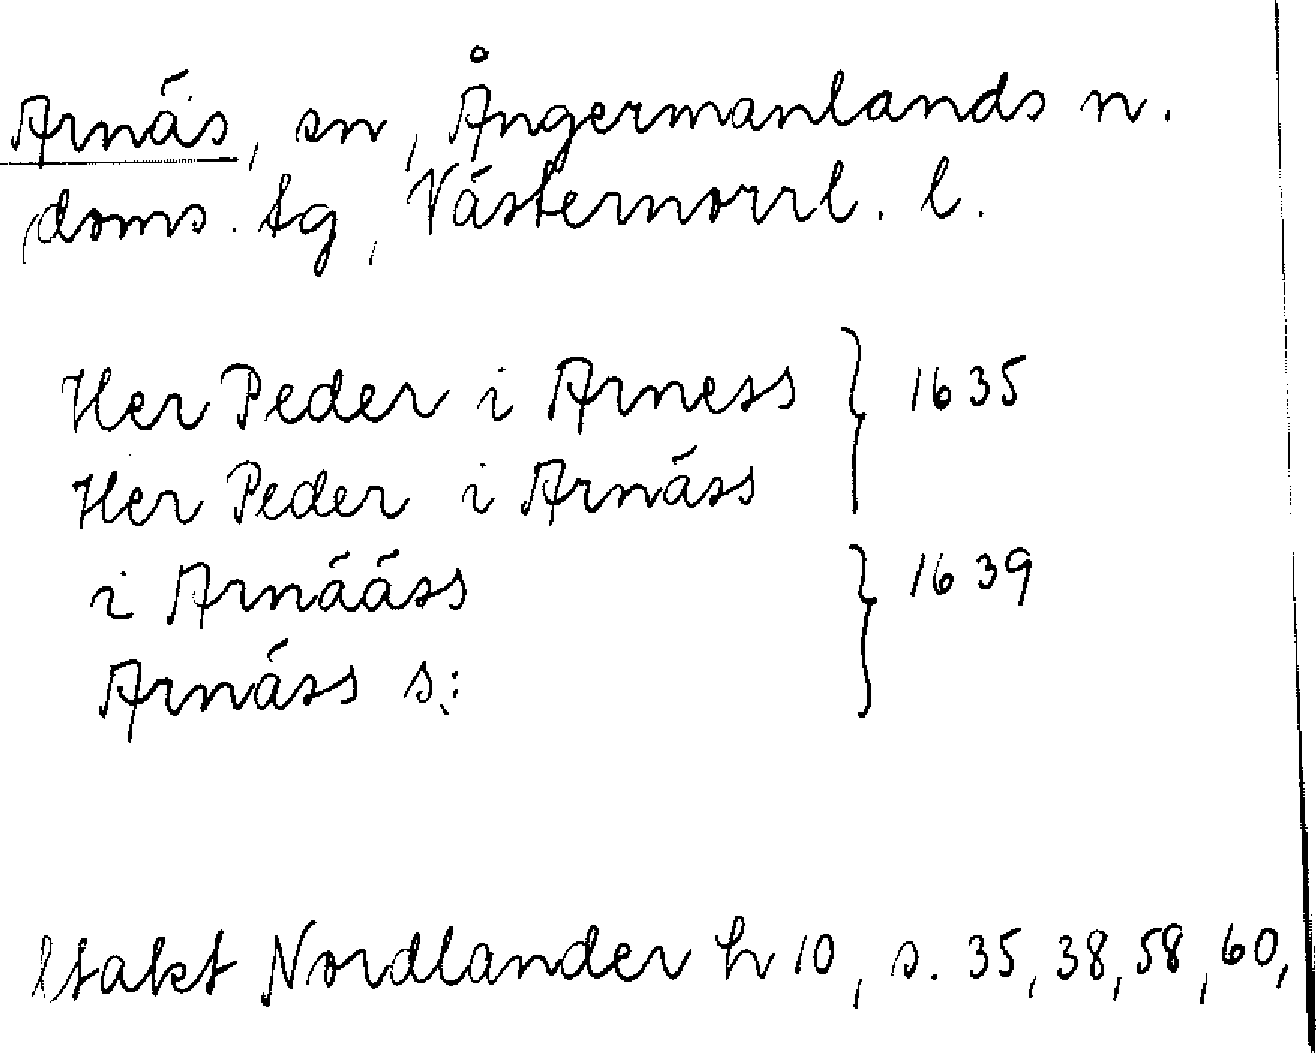 Arnäs, sn, Ångermanlands n.
doms. tg, Västernorrl. l.
Her Peder i Arness } 1635
Her Peder i Arnäss
i Arnääss } 1639
Arnäss s:
Utakt Nordlander h 10, s. 35, 38, 58, 60,